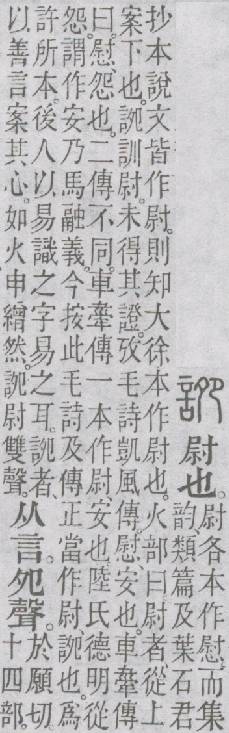 䛄尉也。
尉各本作慰。而集
韵、類篇及葉石君
抄本說文皆作尉。則知大徐本作尉也。火部曰尉者、從上
案下也。䛄訓尉。未得其證。攷毛詩凱風傳慰、安也。車舝傳
曰。慰、怨也。二傳不同。車舝傳一本作尉、安也。陸氏德明從
怨。謂作安乃馬融義。今按此毛詩及傳正當作尉、䛄也。爲
許所本。後人以易識之字易之耳。䛄者、
以善言案其心。如火申繒然。䛄尉雙聲。
从言。夗聲。
於願切。
十四部。